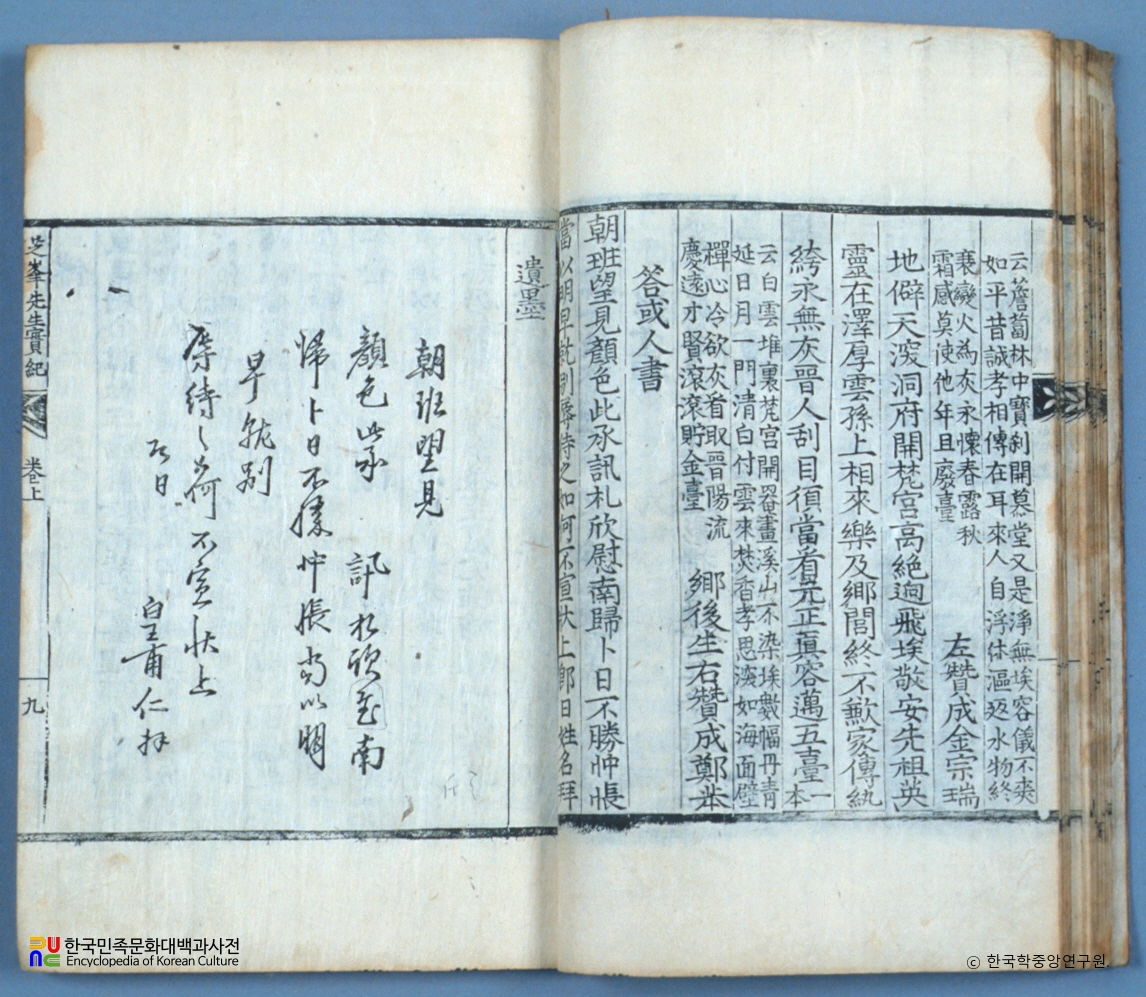 云薝蔔林中寶刹開慕堂又是淨無埃容儀不爽
如平昔誠孝相傳在耳來人自浮休漚返水物終
衰變火為灰永懷春露秋
霜感莫使他年且廢臺
左贊成金宗瑞
地僻天深洞府開梵宮高絶迥飛埃敬安先祖英
靈在澤厚雲孫上相來樂及鄉閭終不歉家傳紈
絝永無灰晉人刮目須當看元正眞容邁五臺一本
云白雲堆裏梵宮開罨畫溪山不染埃數幅丹青
延日月一門清白付雲來焚香孝思深如海面壁
樿心冷欲灰看取晉陽流
慶遠才賢滾滾貯金臺
鄉後生右贊成鄭苯
答或人書
朝班望見顔色此承訊札欣慰南歸卜日不勝忡悵
當以明早就別辱待之如何不宣狀上卽日姓名拜
遺墨
朝班望見
顔色此承 訊札欣慰南
歸卜日不勝忡悵當以明
早就別
辱待之如何不宣狀上
卽日
皇甫仁拜
芝峯先生實紀 卷上 九
한국민족문화대백과사전
Encyclopedia of Korean Culture
ⓒ 한국학중앙연구원